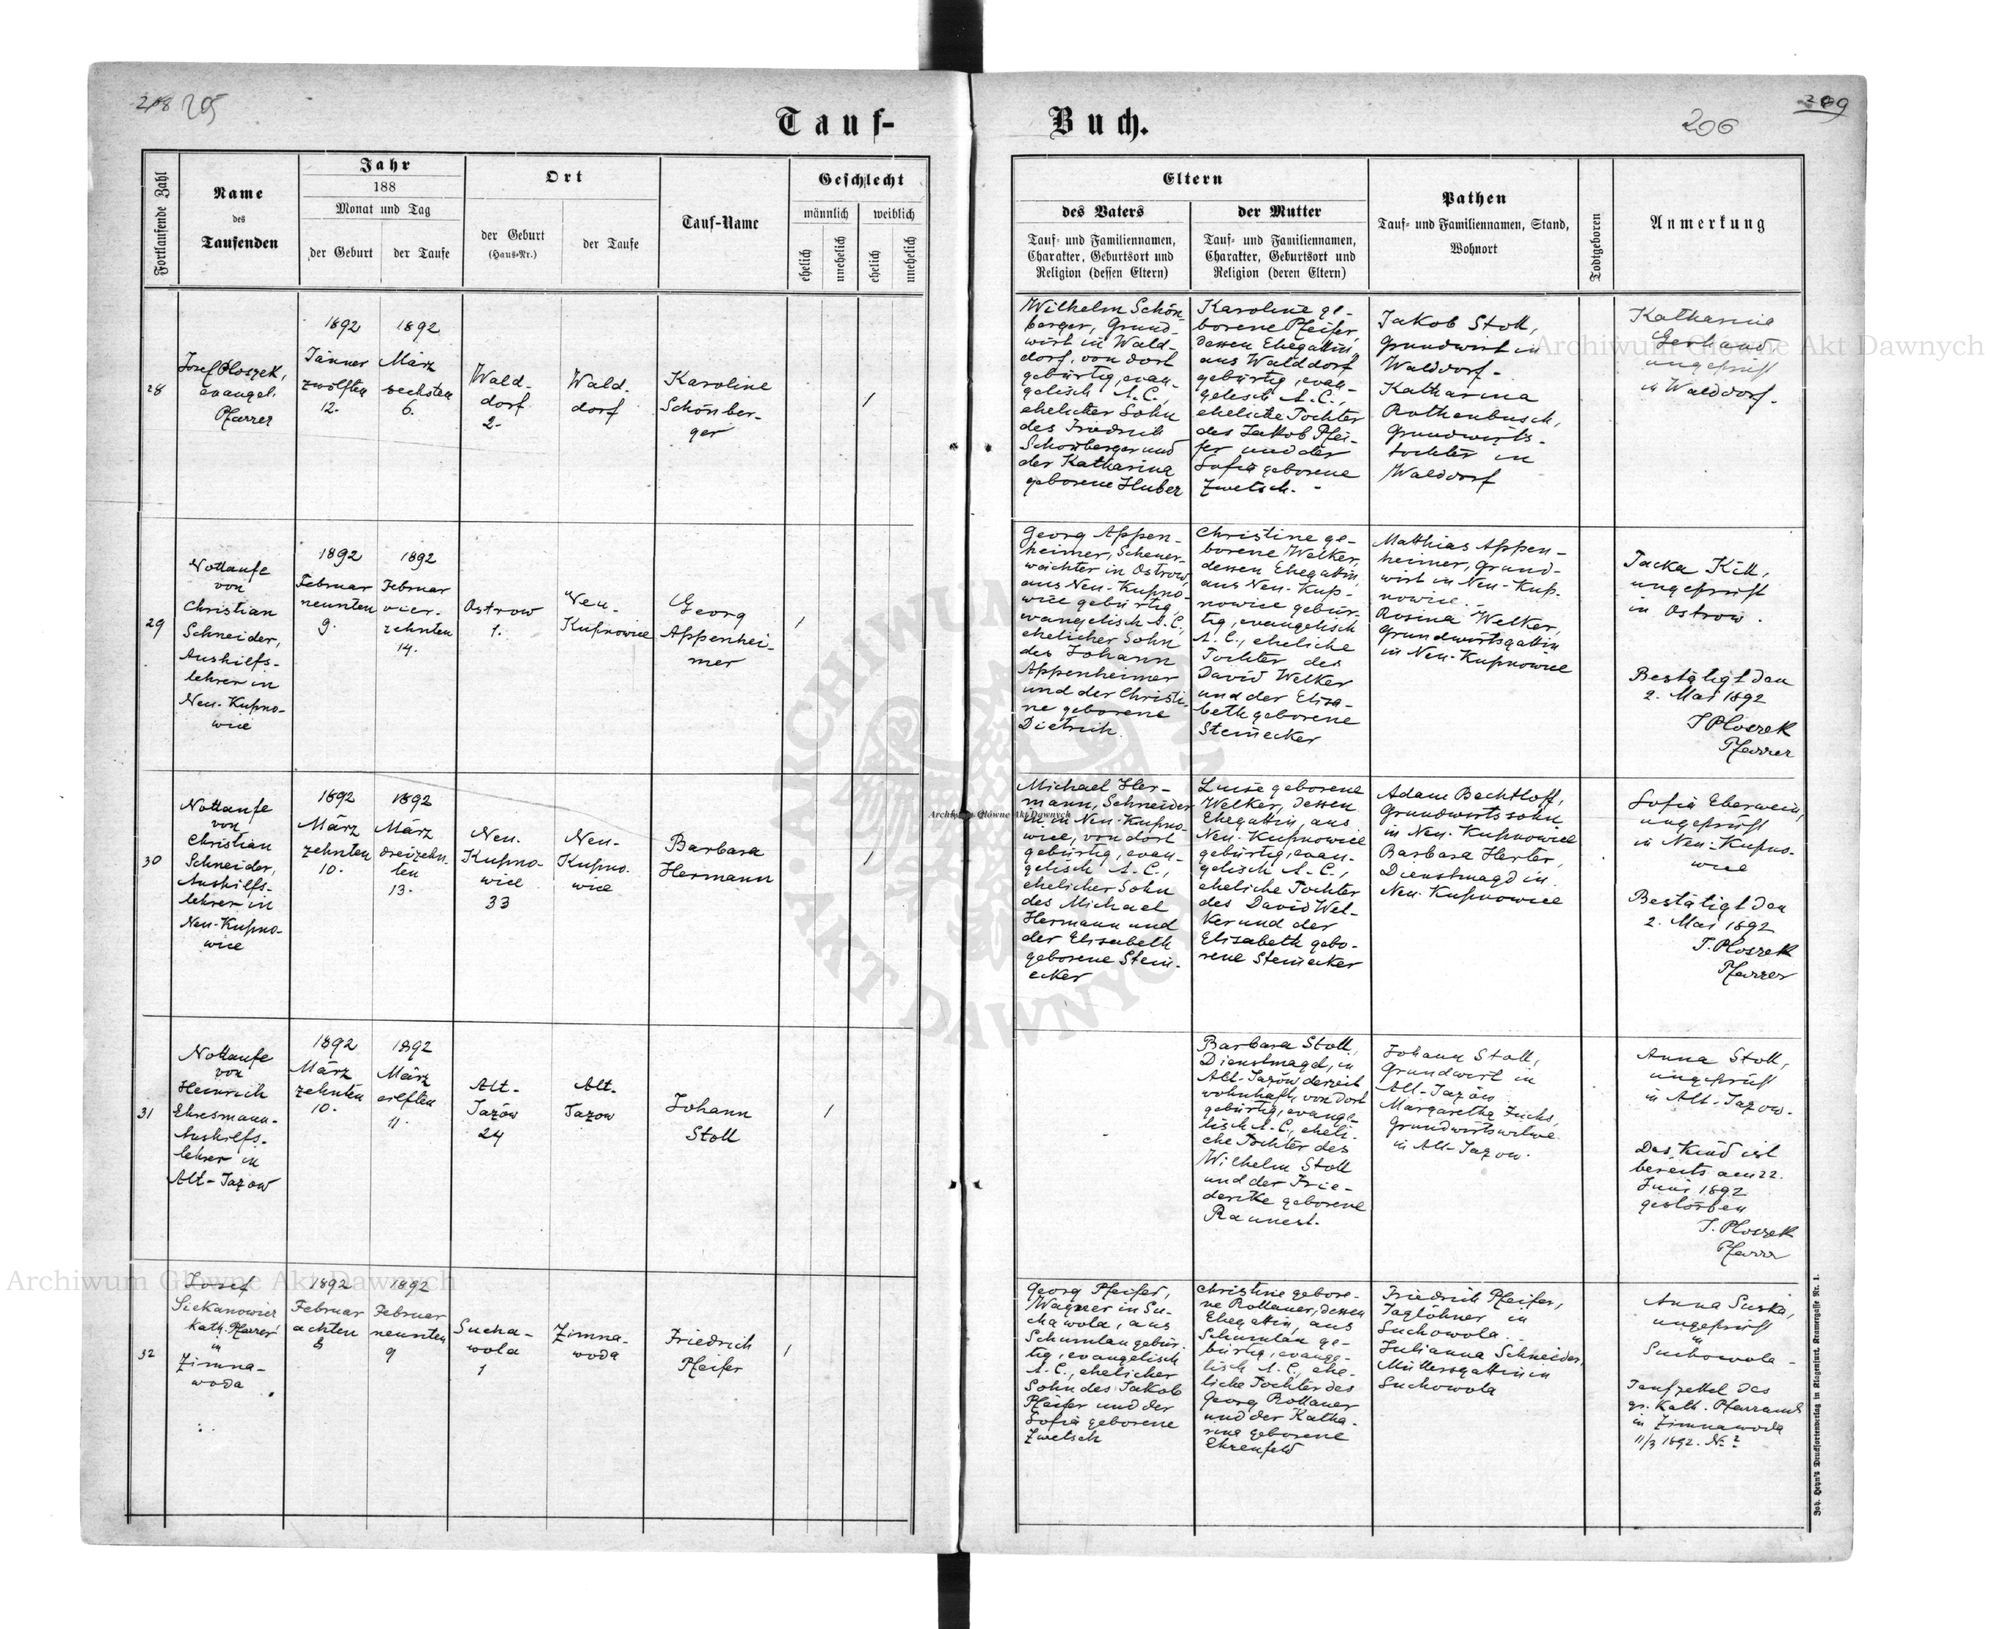 218 205
Tauf-
Buch.
206
209
Fortlaufende Zahl
Name
des
Taufenden
Jahr
188
Monat und Tag
der Geburt
der Taufe
Ort
der Geburt
(Haus-Nr.)
der Taufe
Tauf-Name
Geschlecht
männlich
weiblich
ehelich
unehelich
ehelich
unehelich
Eltern
des Vaters
Tauf- und Familiennamen,
Charakter, Geburtsort und
Religion (dessen Eltern)
der Mutter
Tauf- und Familiennamen,
Charakter, Geburtsort und
Religion (deren Eltern)
Pathen
Tauf- und Familiennamen, Stand,
Wohnort
Todtgeboren
Anmerkung
28
Josef Ploszek,
evangel.
Pfarrer
1892
Jänner
zwölften
12.
1892
März
sechsten
6.
Wald-
dorf
2.
Wald-
dorf
Karoline
Schönber-
ger
1
Wilhelm Schön-
berger, Grund-
wirt in Wald-
dorf, von dort
gebürtig, evan-
gelisch A.C.,
ehelicher Sohn
des Friedrich
Schönberger und
der Katharina
geborene Huber
Karoline ge-
borene Pfeifer,
dessen Ehegattin
aus Walddorf
gebürtig, evan-
gelisch A.C.,
eheliche Tochter
des Jakob Pfei-
fer und der
Sofia geborene
Zwetsch. -
Jakob Stoll,
Grundwirt in
Walddorf-
Katharina
Rothenbusch,
Grundwirts-
tochter in
Walddorf
Katharina
Gerhand
ungeprüft
in Walddorf.
29
Nottaufe
von
Christian
Schneider,
Aushilfs-
lehrer in
Neu-Kupno-
wice
1892
Februar
neunten
9.
1892
Februar
vier-
zehnten
14.
Ostrow
1.
Neu-
Kupnowice
Georg
Appenhei-
mer
1
Georg Appen-
heimer, Scheuer-
wächter in Ostrow,
aus Neu-Kupno-
wice gebürtig,
evangelisch A.C.,
ehelicher Sohn
des Johann
Appenheimer
und der Christi-
ne geborene
Dietrich.
Christine ge-
borene Welker,
dessen Ehegattin,
aus Neu-Kup-
nowice gebür-
tig, evangelisch
A.C., eheliche
Tochter des
David Welker
und der Elisa-
beth geborene
Steinecker
Matthias Appen-
heimer, Grund-
wirt in Neu-Kup-
nowice.-
Rosina Welker,
Grundwirtsgattin
in Neu-Kupnowice
Jacka Kitt,
ungeprüft
in Ostrow.
Bestätigt den
2. Mai 1892
J Ploszek
Pfarrer
30
Nottaufe
von
Christian
Schneider,
Aushilfs-
lehrer in
Neu-Kupno-
wice
1892
März
zehnten
10.
1892
März
dreizehn-
ten
13.
Neu-
Kupno-
wice
33
Neu-
Kupno-
wice
Barbara
Hermann
1
Michael Her-
mann, Schneider
in Neu-Kupno-
wice, von dort
gebürtig, evan-
gelisch A.C.,
ehelicher Sohn
des Michael
Hermann und
der Elisabeth
geborene Stein-
ecker
Luise geborene
Welker, dessen
Ehegattin, aus
Neu-Kupnowice
gebürtig, evan-
gelisch A.C.,
eheliche Tochter
des David Wel-
ker und der
Elisabeth gebo-
rene Steinecker
Adam Bechtloff,
Grundwirtssohn
in Neu-Kupnowice
Barbara Herter,
Dienstmagd in
Neu-Kupnowice
Sofia Eberwein,
ungeprüft
in Neu-Kupno-
wice
Bestätigt den
2. Mai 1892
J. Ploszek
Pfarrer
31
Nottaufe
von
Heinrich
Ehresmann-
Aushilfs-
lehrer in
Alt-Jazow
1892
März
zehnten
10.
1892
März
eilften
11.
Alt-
Jazów
24
Alt-
Jazow
Johann
Stoll
1
-
Barbara Stoll,
Dienstmagd, in
Alt-Jazów derzeit
wohnhaft, von dort
gebürtig, evange-
lisch A.C., eheli-
che Tochter des
Wilhelm Stoll
und der Frie-
derike geborene
Rannert.
Johann Stoll,
Grundwirt in
Alt-Jazów
Margaretha Fuchs,
Grundwirtswitwe
in Alt-Jazow.
Anna Stoll,
ungeprüft
in Alt-Jazow.
Das Kind ist
bereits am 22.
Juni 1892
gestorben
J. Ploszek
Pfarrer
32
Josef
Siekanowicz
kath. Pfarrer
in
Zimna-
woda
1892
Februar
achten
8
1892
Februar
neunten
9
Sucha-
wola
1
Zimna-
woda
Friedrich
Pfeifer
1
Georg Pfeifer,
Wagner in Su-
chawola, aus
Schumlau gebür-
tig, evangelisch
A.C., ehelicher
Sohn des Jakob
Pfeifer und der
Sofia geborene
Zwetsch
Christine gebore-
ne Rottauer, dessen
Ehegattin, aus
Schumlau ge-
bürtig, evange-
lisch A.C., ehe-
liche Tochter des
Georg Rottauer
und der Katha-
rina geborene
Ehrenfeld
Friedrich Pfeifer,
Taglöhner in
Suchowola.
Julianna Schneider,
Müllersgattin in
Suchowola
Anna Suska,
ungeprüft
in
Suchowola-
Taufzettel des
gr. kath. Pfarramts
in Zimnawoda
11/3 1892. No 2
Joh. Heyn's Drucksortenverlag in Klagenfurt. Kramergasse Nr. 1.
Archiwum Główne Akt Dawnych
Archiwum Główne Akt Dawnych
Archiwum Główne Akt Dawnych
ARCHIWUM
AKT DAWNYCH